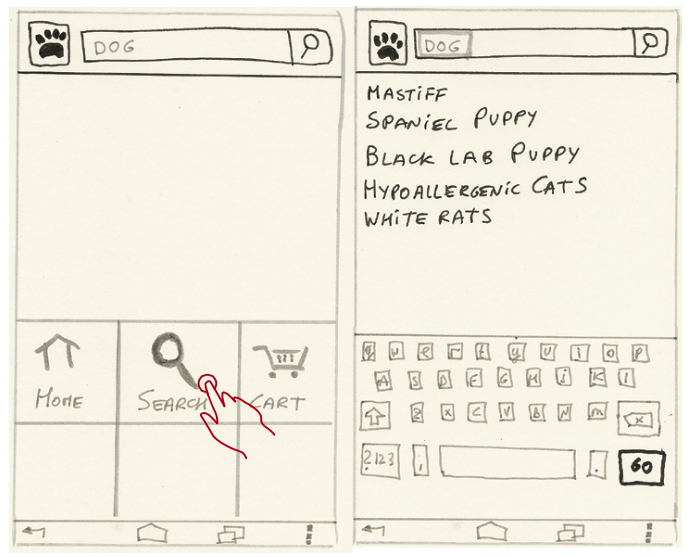 DOG
HOME
SEARCH
CART
DOG
MASTIFF
SPANIEL PUPPY
BLACK LAB PUPPY
HYPOALLERGENIC CATS
WHITE RATS
q w e r t y u i o p
A S D F G H J K L
Z X C V B N M X
?123 , . GO